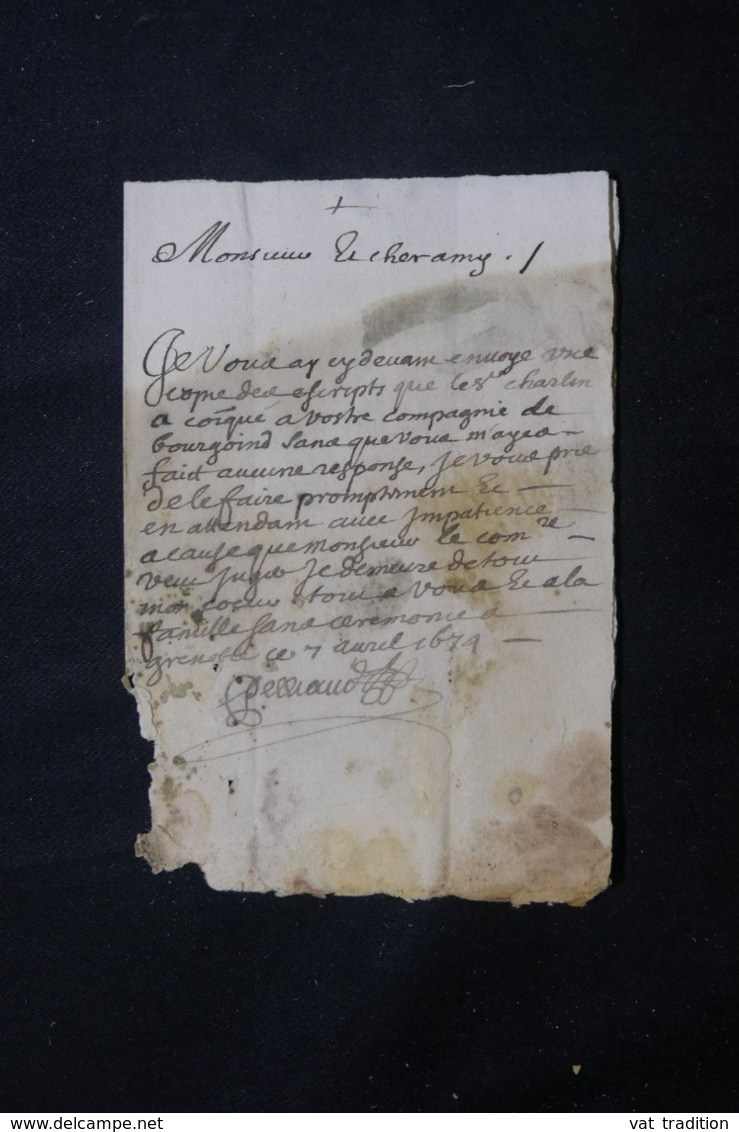 +
Monsieur Et cher amy . /
Je Vous ay cy devam envoyé vne
copie des escripts que le Sr charlin
a coīqué a vostre compagnie de
bourgoind sans que vous m'ayes
fait aucune response, Je vous prie
de le faire promptement Et
en attendam avec Impatience
a cause que monsieur le com re
veu Juger Je demeure de tout
mon coeur tout a vous Et a la
famille sans ceremonie a
grenoble ce 7 avril 1674
www.delcampe.net
vat tradition